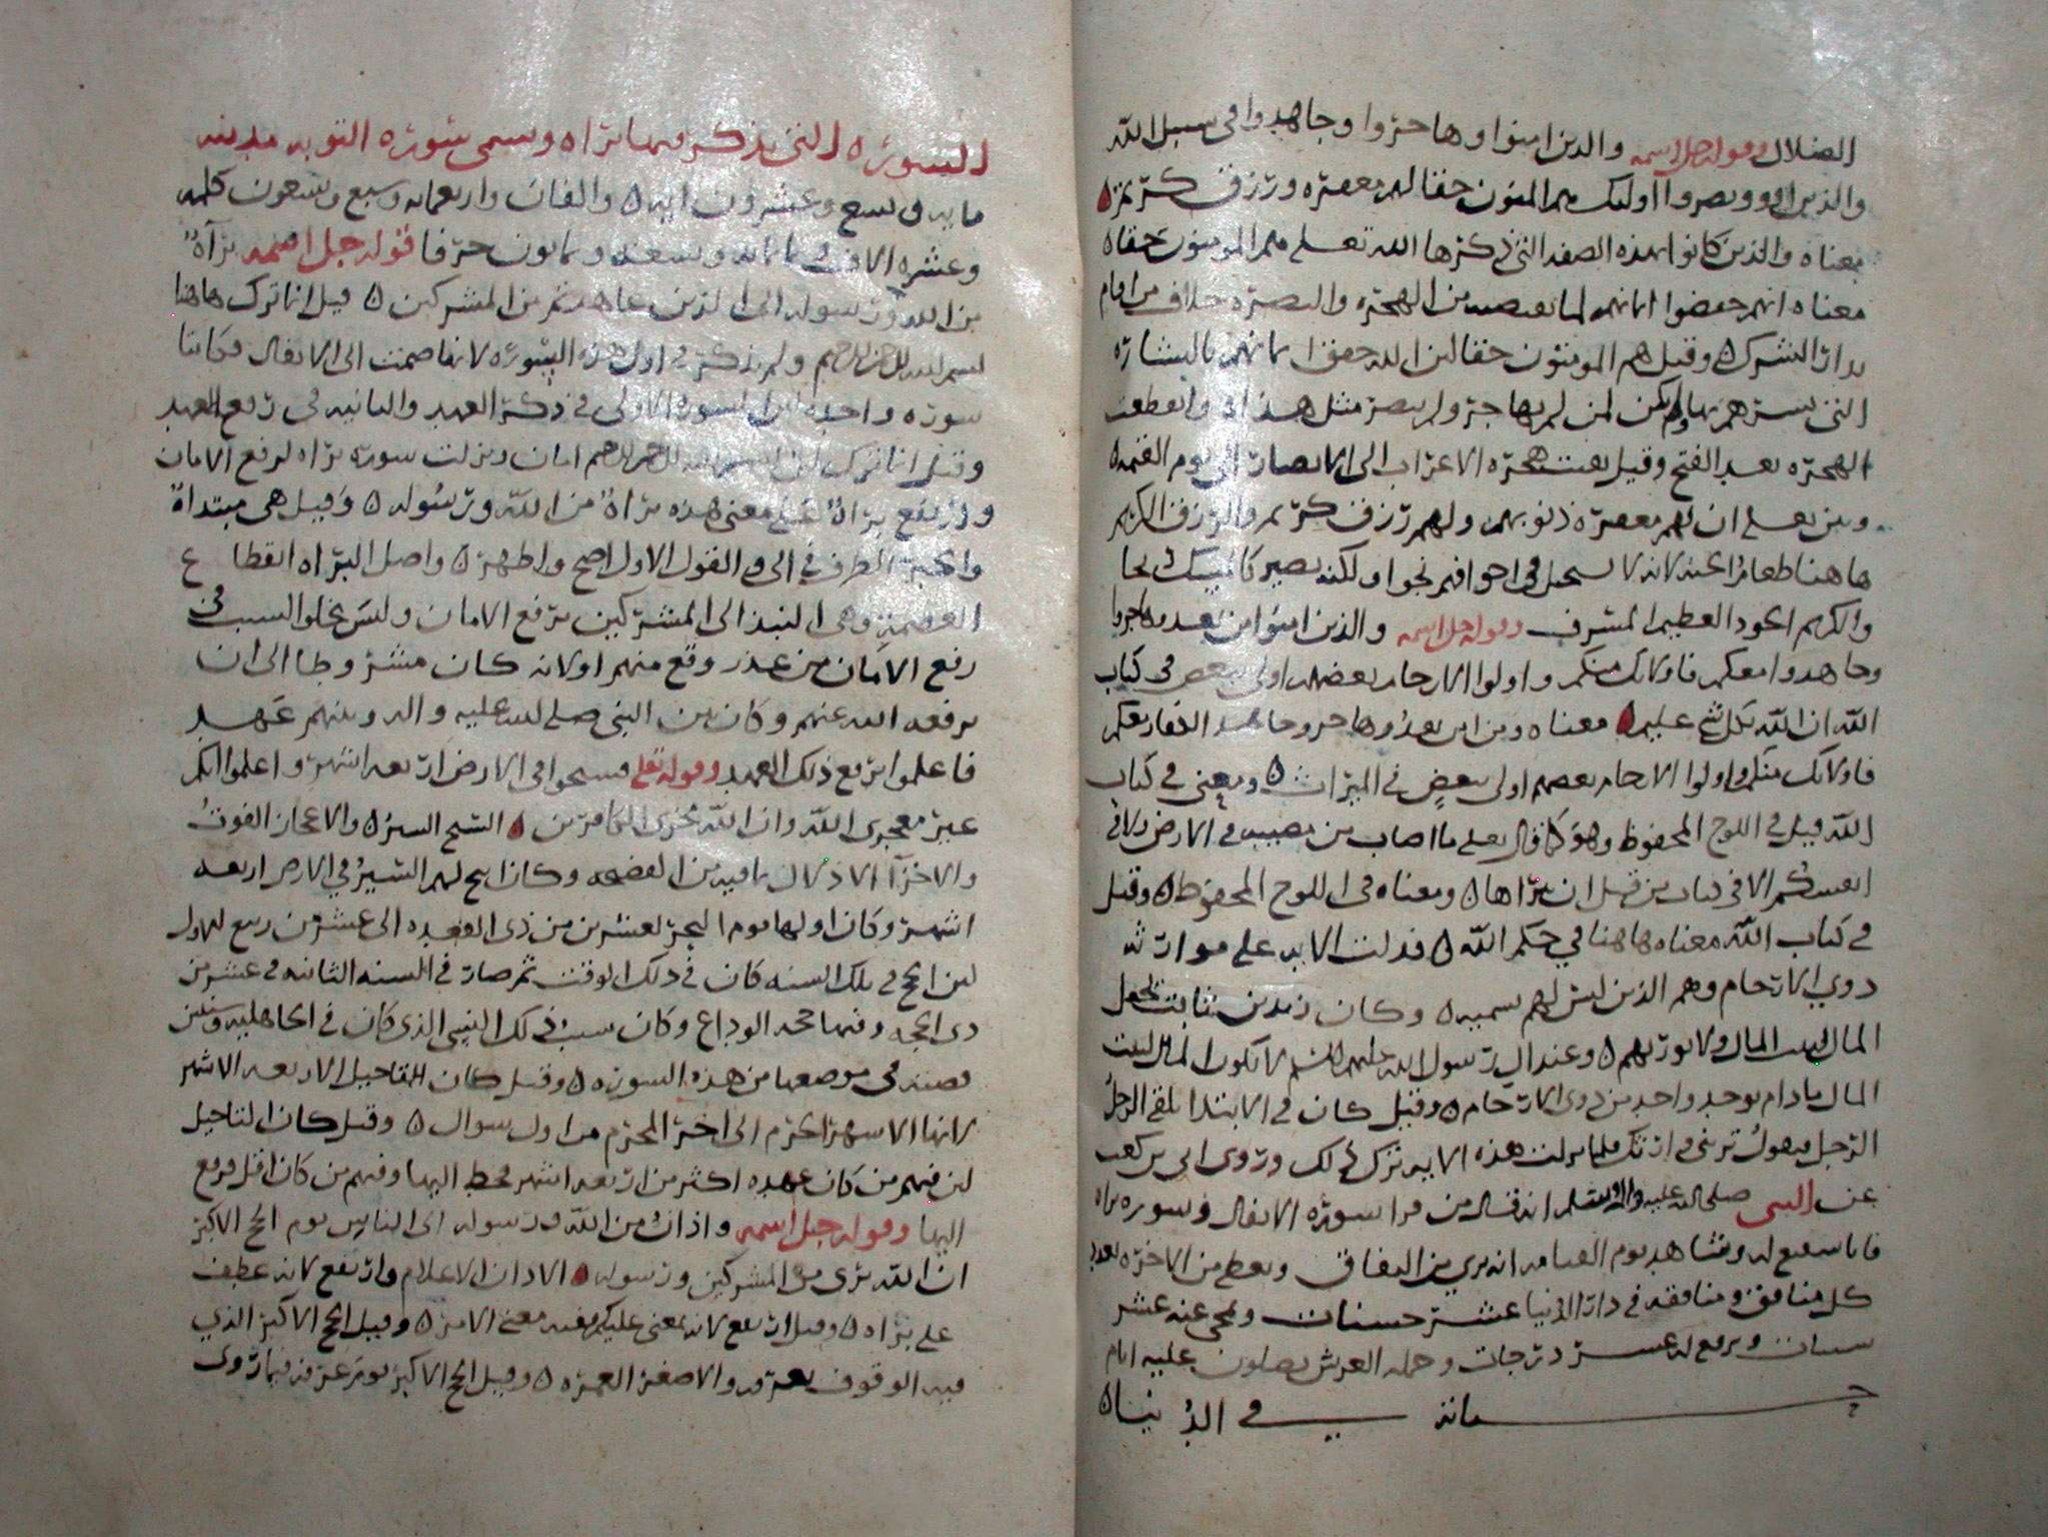 الضلال وقوله جل اسمه والذين امنوا وهاجروا وجاهدوا في سبيل الله
والذين اووا ونصروا اوليك هم المومنون حقا لهم مغفره ورزق كريم
معناه والذين كانوا بهذه الصفه التي ذكرها الله تعلى هم المومنون حقا
معناه انهم حققوا ايمانهم لما يقتضيه من الهجره والنصره خلاف من اقام
بدار الشرك وقيل هم المومنون حقا لان الله حقق ايمانهم بالبشاره
التي بشرهم بها ولم يكن لمن لم يهاجر ولم ينصر مثل هذا وانقطعت
الهجره بعد الفتح وقيل بقيت هجره الاعراب الى الامصار الى يوم القيمه
وبين تعلى ان لهم مغفره ذنوبهم ولهم رزق كريم والرزق الكريم
هاهنا طعام الجنه لانه لا يستحيل في اجوافهم نجوا ولكنه يصير كالمسك
والكريم الجود العظيم الشرف وقوله جل اسمه والذين امنوا من بعد وهاجروا
وجاهدوا معكم فاولئك منكم واولوا الارحام بعضهم اولى ببعض في كتاب
الله ان الله بكل شي عليم معناه ومن امن بعد وهاجر وجاهد الكفار معكم
فاولئك منكم واولوا الارحام بعضهم اولى ببعض في الميراث ومعنى في كتاب
الله قيل في اللوح المحفوظ وهو كما قال تعلى ما اصاب من مصيبه في الارض ولا في
انفسكم الا في كتاب من قبل ان نبراها ومعناه في اللوح المحفوظ وقيل
في كتاب الله معناه هاهنا في حكم الله فدلت الايه على موارثه
ذوي الارحام وهم الذين ليس لهم تسميه وكان زيد بن ثابت يجعل
المال لبيت المال ولا يورثهم وعند ال رسول الله عليهم السلم لا يكون المال لبيت
المال ما دام يوجد واحد من ذوي الارحام وقيل كان في الابتدا يلقى الرجل
الرجل فيقول ترثني وارثك فلما نزلت هذه الايه ترك ذلك وروى ابي بن كعب
عن النبي صلى الله عليه واله وسلم انه قال من قرا سوره الانفال وسوره براه
فانا شفيع له وشاهد يوم القيامه انه بري من النفاق ويعطى من الاخره بعدد
كل منافق ومنافقه في دار الدنيا عشر حسنات ومحي عنه عشر
سيات ويرفع له عشر درجات وحمله العرش يصلون عليه ايام
حياته في الدنيا
السوره التي يذكر فيها براه وتسمى سوره التوبه مدنيه
مايه وتسع وعشرون ايه والفان واربعمايه وسبع وتسعون كلمه
وعشره الاف وثمانمايه وسبعه وثمانون حرفا قوله جل اسمه براة
من الله ورسوله الى الذين عاهدتم من المشركين قيل انما ترك هاهنا
بسم الله الرحمن الرحيم ولم يذكر في اول هذه السوره لانها ضمت الى الانفال فكانتا
سوره واحده لان السوره الاولى في ذكر العهد والثانيه في رفع العهد
وقيل انما ترك لان بسم الله الرحمن الرحيم امان ونزلت سوره براه لرفع الامان
وارتفع براة على معنى هذه براة من الله ورسوله وقيل هي مبتداة
والخبر الظرف في الى والقول الاول اصح واظهر واصل البراه انقطاع
العصمه وهي النبذ الى المشركين برفع الامان وليس يخلوا السبب في
رفع الامان من غدر وقع منهم او لانه كان مشروطا الى ان
يرفعه الله عنهم وكان بين النبي صلى الله عليه واله وبينهم عهد
فاعلموا برفع ذلك العهد وقوله تعلى فسيحوا في الارض اربعه اشهر واعلموا انكم
غير معجزي الله وان الله مخزي الكافرين السيح السير والاعجاز الفوت
والاخزا الاذلال بما فيه من الفضيحه وكان ابيح لهم السير في الارض اربعه
اشهر وكان اولها يوم النحر لعشرين من ذي القعده الى عشر من ربيع الاول
لان الحج في تلك السنه كان في ذلك الوقت ثم صار في السنه الثانيه في عشر من
ذي الحجه وفيها حجه الوداع وكان سبب ذلك النسي الذي كان في الجاهليه
قصته في موضعها من هذه السوره وقيل كان التاجيل الاربعه الاشهر
لانها الاشهر الحرم الى اخر المحرم من اول شوال وقيل كان التاجيل
لان فيهم من كان عهده اكثر من اربعه اشهر فحط اليها وفيهم من كان اقل فرفع
اليها وقوله جل اسمه واذان من الله ورسوله الى الناس يوم الحج الاكبر
ان الله بري من المشركين ورسوله الاذان الاعلام وارتفع لانه عطف
على براه وقيل ارتفع لانه بمعنى عليكم ففيه معنى الامر وقيل الحج الاكبر الذي
فيه الوقوف بعرفه والاصغر العمره وقيل الحج الاكبر يوم عرفه فيما روى